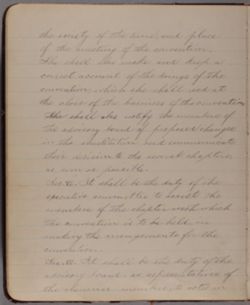 the society of the time and place
of the meeting of the convention.
She shall also make and keep a
correct account of the doings of the
convention which she shall read at
the close of the business of the convention
She shall also notify the members of
the advisory board of proposed changes
in the constitution and communicate
their decision to the several chapters
as soon as possible.
It shall be the duty of the
executive committee to assist the
members of the chapter with which
the convention is to be held in
making the arrangements for the
convention.
It shall be the duty of the
advisory board as representatives of
the members to vote in